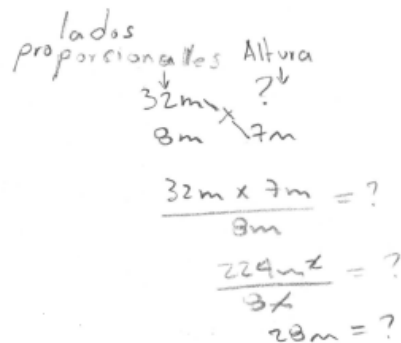 lados
proporsionalles Altura
32m ?
8m 7m
32m x 7m = ?
8m
224m² = ?
8m
28m = ?